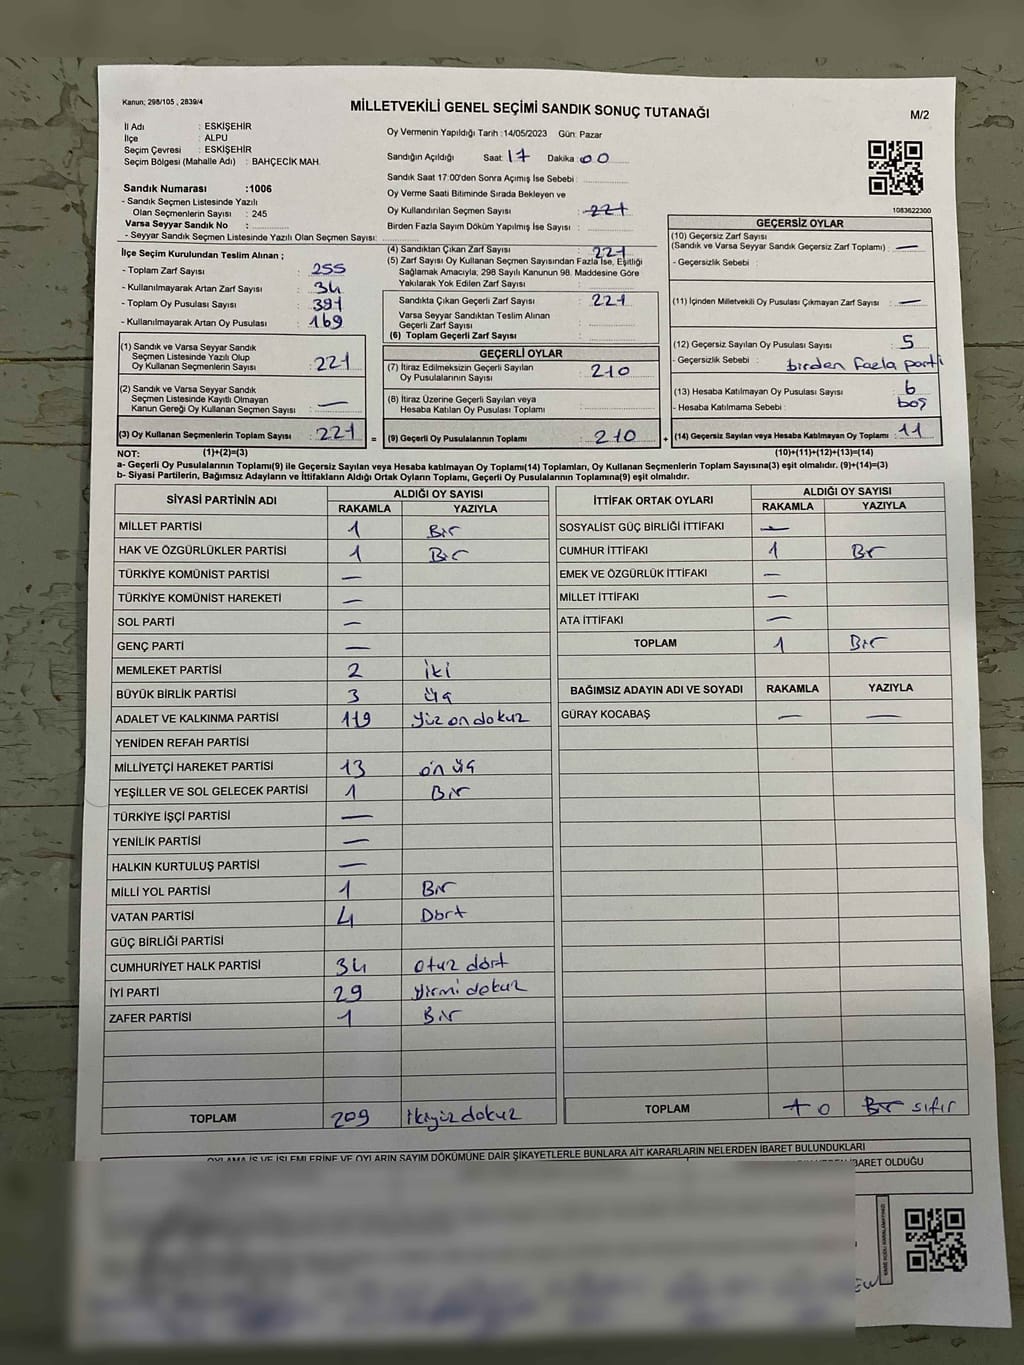 Kanun; 298/105 , 2839/4
MİLLETVEKİLİ GENEL SEÇİMİ SANDIK SONUÇ TUTANAĞI
M/2
İl Adı : ESKİŞEHİR
İlçe : ALPU
Seçim Çevresi : ESKİŞEHİR
Seçim Bölgesi (Mahalle Adı) : BAHÇECİK MAH.
Oy Vermenin Yapıldığı Tarih : 14/05/2023 Gün: Pazar
Sandığın Açıldığı Saat 17 Dakika : 00
Sandık Saat 17:00'den Sonra Açımış İse Sebebi :
Oy Verme Saati Bitiminde Sırada Bekleyen ve
Oy Kullandırılan Seçmen Sayısı : 221
Birden Fazla Sayım Döküm Yapılmış İse Sayısı :
1083622300
Sandık Numarası :1006
- Sandık Seçmen Listesinde Yazılı
Olan Seçmenlerin Sayısı : 245
Varsa Seyyar Sandık No :
- Seyyar Sandık Seçmen Listesinde Yazılı Olan Seçmen Sayısı:
İlçe Seçim Kurulundan Teslim Alınan ;
- Toplam Zarf Sayısı : 255
- Kullanılmayarak Artan Zarf Sayısı : 34
- Toplam Oy Pusulası Sayısı : 391
- Kullanılmayarak Artan Oy Pusulası : 169
(1) Sandık ve Varsa Seyyar Sandık
Seçmen Listesinde Yazılı Olup
Oy Kullanan Seçmenlerin Sayısı : 221
(2) Sandık ve Varsa Seyyar Sandık
Seçmen Listesinde Kayıtlı Olmayan
Kanun Gereği Oy Kullanan Seçmen Sayısı : —
(3) Oy Kullanan Seçmenlerin Toplam Sayısı : 221 =
(4) Sandıktan Çıkan Zarf Sayısı : 221
(5) Zarf Sayısı Oy Kullanan Seçmen Sayısından Fazla İse, Eşitliği
Sağlamak Amacıyla, 298 Sayılı Kanunun 98. Maddesine Göre
Yakılarak Yok Edilen Zarf Sayısı :
Sandıkta Çıkan Geçerli Zarf Sayısı : 221
Varsa Seyyar Sandıktan Teslim Alınan
Geçerli Zarf Sayısı :
(6) Toplam Geçerli Zarf Sayısı :
GEÇERLİ OYLAR
(7) İtiraz Edilmeksizin Geçerli Sayılan
Oy Pusulalarının Sayısı : 210
(8) İtiraz Üzerine Geçerli Sayılan veya
Hesaba Katılan Oy Pusulası Toplamı :
(9) Geçerli Oy Pusulalarının Toplamı : 210 +
GEÇERSİZ OYLAR
(10) Geçersiz Zarf Sayısı
(Sandık ve Varsa Seyyar Sandık Geçersiz Zarf Toplamı) : —
- Geçersizlik Sebebi :
(11) İçinden Milletvekili Oy Pusulası Çıkmayan Zarf Sayısı : —
(12) Geçersiz Sayılan Oy Pusulası Sayısı : 5
- Geçersizlik Sebebi : birden fazla parti
(13) Hesaba Katılmayan Oy Pusulası Sayısı : 6
- Hesaba Katılmama Sebebi : boş
(14) Geçersiz Sayılan veya Hesaba Katılmayan Oy Toplamı : 11
NOT: (1)+(2)=(3) (10)+(11)+(12)+(13)=(14)
a- Geçerli Oy Pusulalarının Toplamı(9) ile Geçersiz Sayılan veya Hesaba katılmayan Oy Toplamı(14) Toplamları, Oy Kullanan Seçmenlerin Toplam Sayısına(3) eşit olmalıdır. (9)+(14)=(3)
b- Siyasi Partilerin, Bağımsız Adayların ve İttifakların Aldığı Ortak Oyların Toplamı, Geçerli Oy Pusulalarının Toplamına(9) eşit olmalıdır.
SİYASİ PARTİNİN ADI ALDIĞI OY SAYISI
RAKAMLA YAZIYLA
MİLLET PARTİSİ 1 Bir
HAK VE ÖZGÜRLÜKLER PARTİSİ 1 Bir
TÜRKİYE KOMÜNİST PARTİSİ —
TÜRKİYE KOMÜNİST HAREKETİ —
SOL PARTİ —
GENÇ PARTİ —
MEMLEKET PARTİSİ 2 iki
BÜYÜK BİRLİK PARTİSİ 3 üç
ADALET VE KALKINMA PARTİSİ 119 yüz on dokuz
YENİDEN REFAH PARTİSİ
MİLLİYETÇİ HAREKET PARTİSİ 13 on üç
YEŞİLLER VE SOL GELECEK PARTİSİ 1 Bir
TÜRKİYE İŞÇİ PARTİSİ —
YENİLİK PARTİSİ —
HALKIN KURTULUŞ PARTİSİ —
MİLLİ YOL PARTİSİ 1 Bir
VATAN PARTİSİ 4 Dört
GÜÇ BİRLİĞİ PARTİSİ
CUMHURİYET HALK PARTİSİ 34 otuz dört
İYİ PARTİ 29 yirmi dokuz
ZAFER PARTİSİ 1 Bir
TOPLAM 209 ikiyüz dokuz
İTTİFAK ORTAK OYLARI ALDIĞI OY SAYISI
RAKAMLA YAZIYLA
SOSYALİST GÜÇ BİRLİĞİ İTTİFAKI —
CUMHUR İTTİFAKI 1 Bir
EMEK VE ÖZGÜRLÜK İTTİFAKI —
MİLLET İTTİFAKI —
ATA İTTİFAKI —
TOPLAM 1 Bir
BAĞIMSIZ ADAYIN ADI VE SOYADI RAKAMLA YAZIYLA
GÜRAY KOCABAŞ — —
TOPLAM 1 0 Bir sıfır
OYLAMA İŞ VE İŞLEMLERİNE VE OYLARIN SAYIM DÖKÜMÜNE DAİR ŞİKAYETLERLE BUNLARA AİT KARARLARIN NELERDEN İBARET BULUNDUKLARI
İBARET OLDUĞU